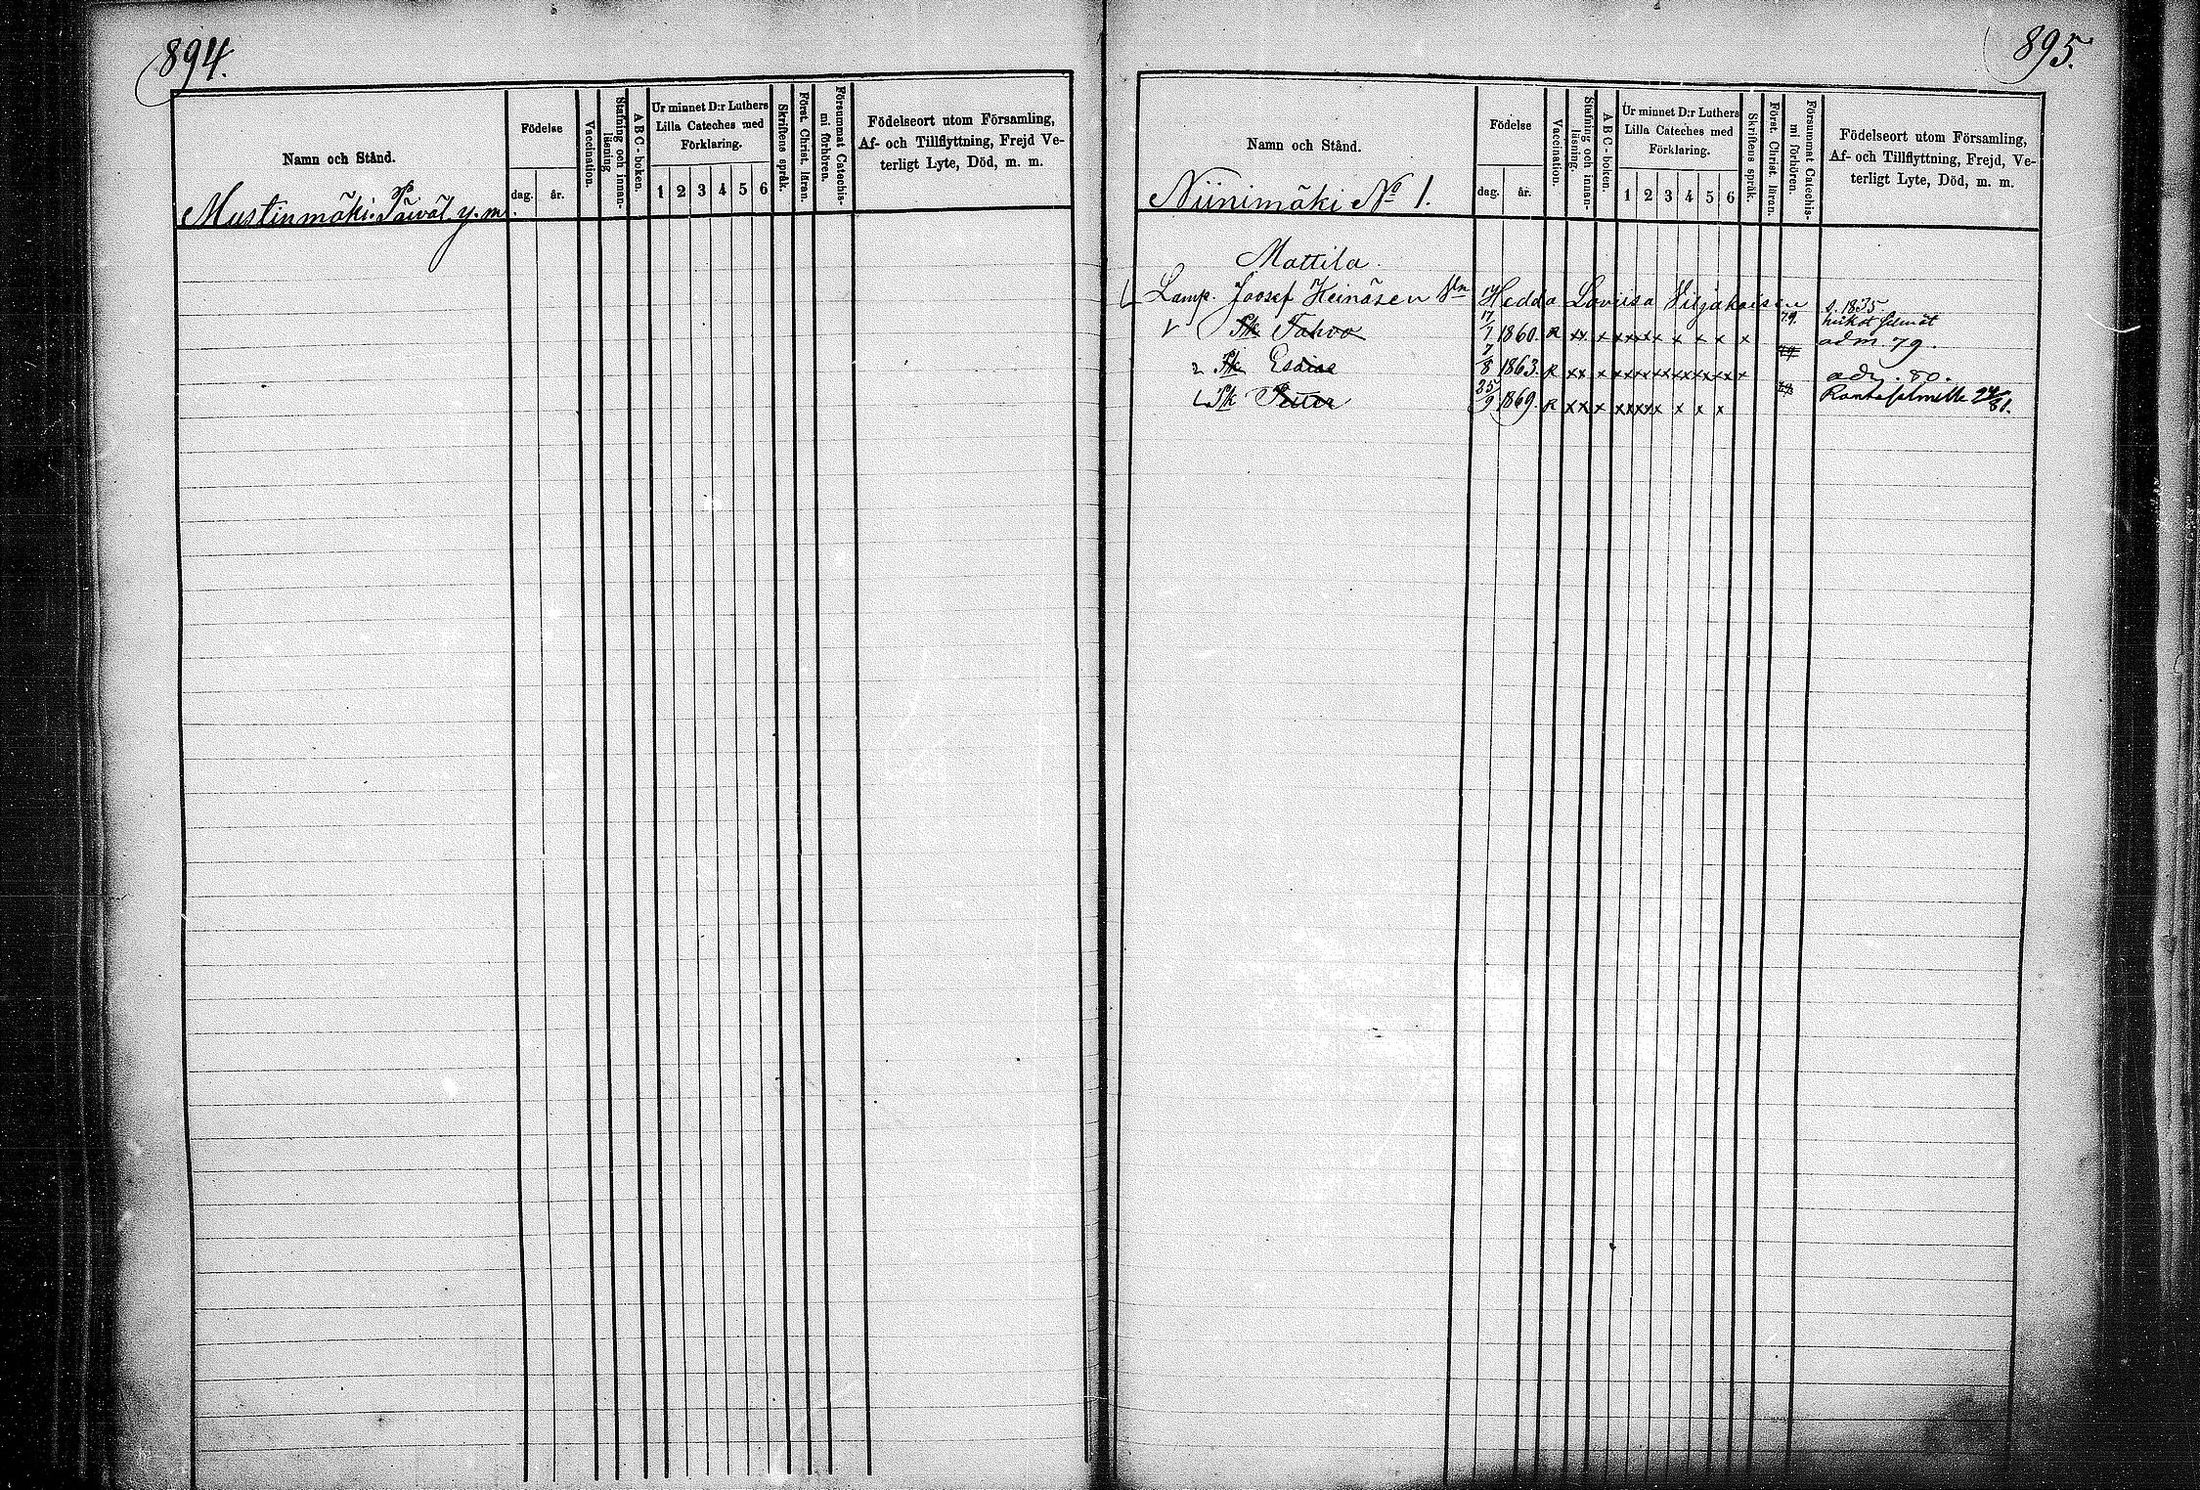 894.
Namn och Stånd.
Födelse
dag. år.
Vaccination.
Stafning och innanläsning
A B C - boken.
Ur minnet D:r Luthers Lilla Cateches med Förklaring.
1 2 3 4 5 6
Skriftens språk.
Först. Christ. läran.
Försummat Catechismi förhören.
Födelseort utom Församling,
Af- och Tillflyttning, Frejd Ve-
terligt Lyte, Död, m. m.
Mustinmäki. Päiväl. y. m.
895.
Namn och Stånd.
Födelse
dag. år.
Vaccination.
Stafning och innanläsning.
A B C - boken.
Ur minnet D:r Luthers Lilla Cateches med Förklaring.
1 2 3 4 5 6
Skriftens språk.
Först. Christ. läran.
Försummat Catechismi förhören.
Födelseort utom Församling,
Af- och Tillflyttning, Frejd, Ve-
terligt Lyte, Död, m. m.
Niinimäki No 1.
Mattila.
Lamp. Joosef Heinäsen Hedda Loviisa Viljakaisen s. 1835
Pk Tahvo 17/1 1860. R xx x xxxx x x x x x 79. adm 79.
Pk Esaias 7/8 1863. R xx x xxxxxxxxxxx x adm. 80.
Pk Petter 25/9 1869. R xx x xxxx x x x x Rantasalmelle 81.